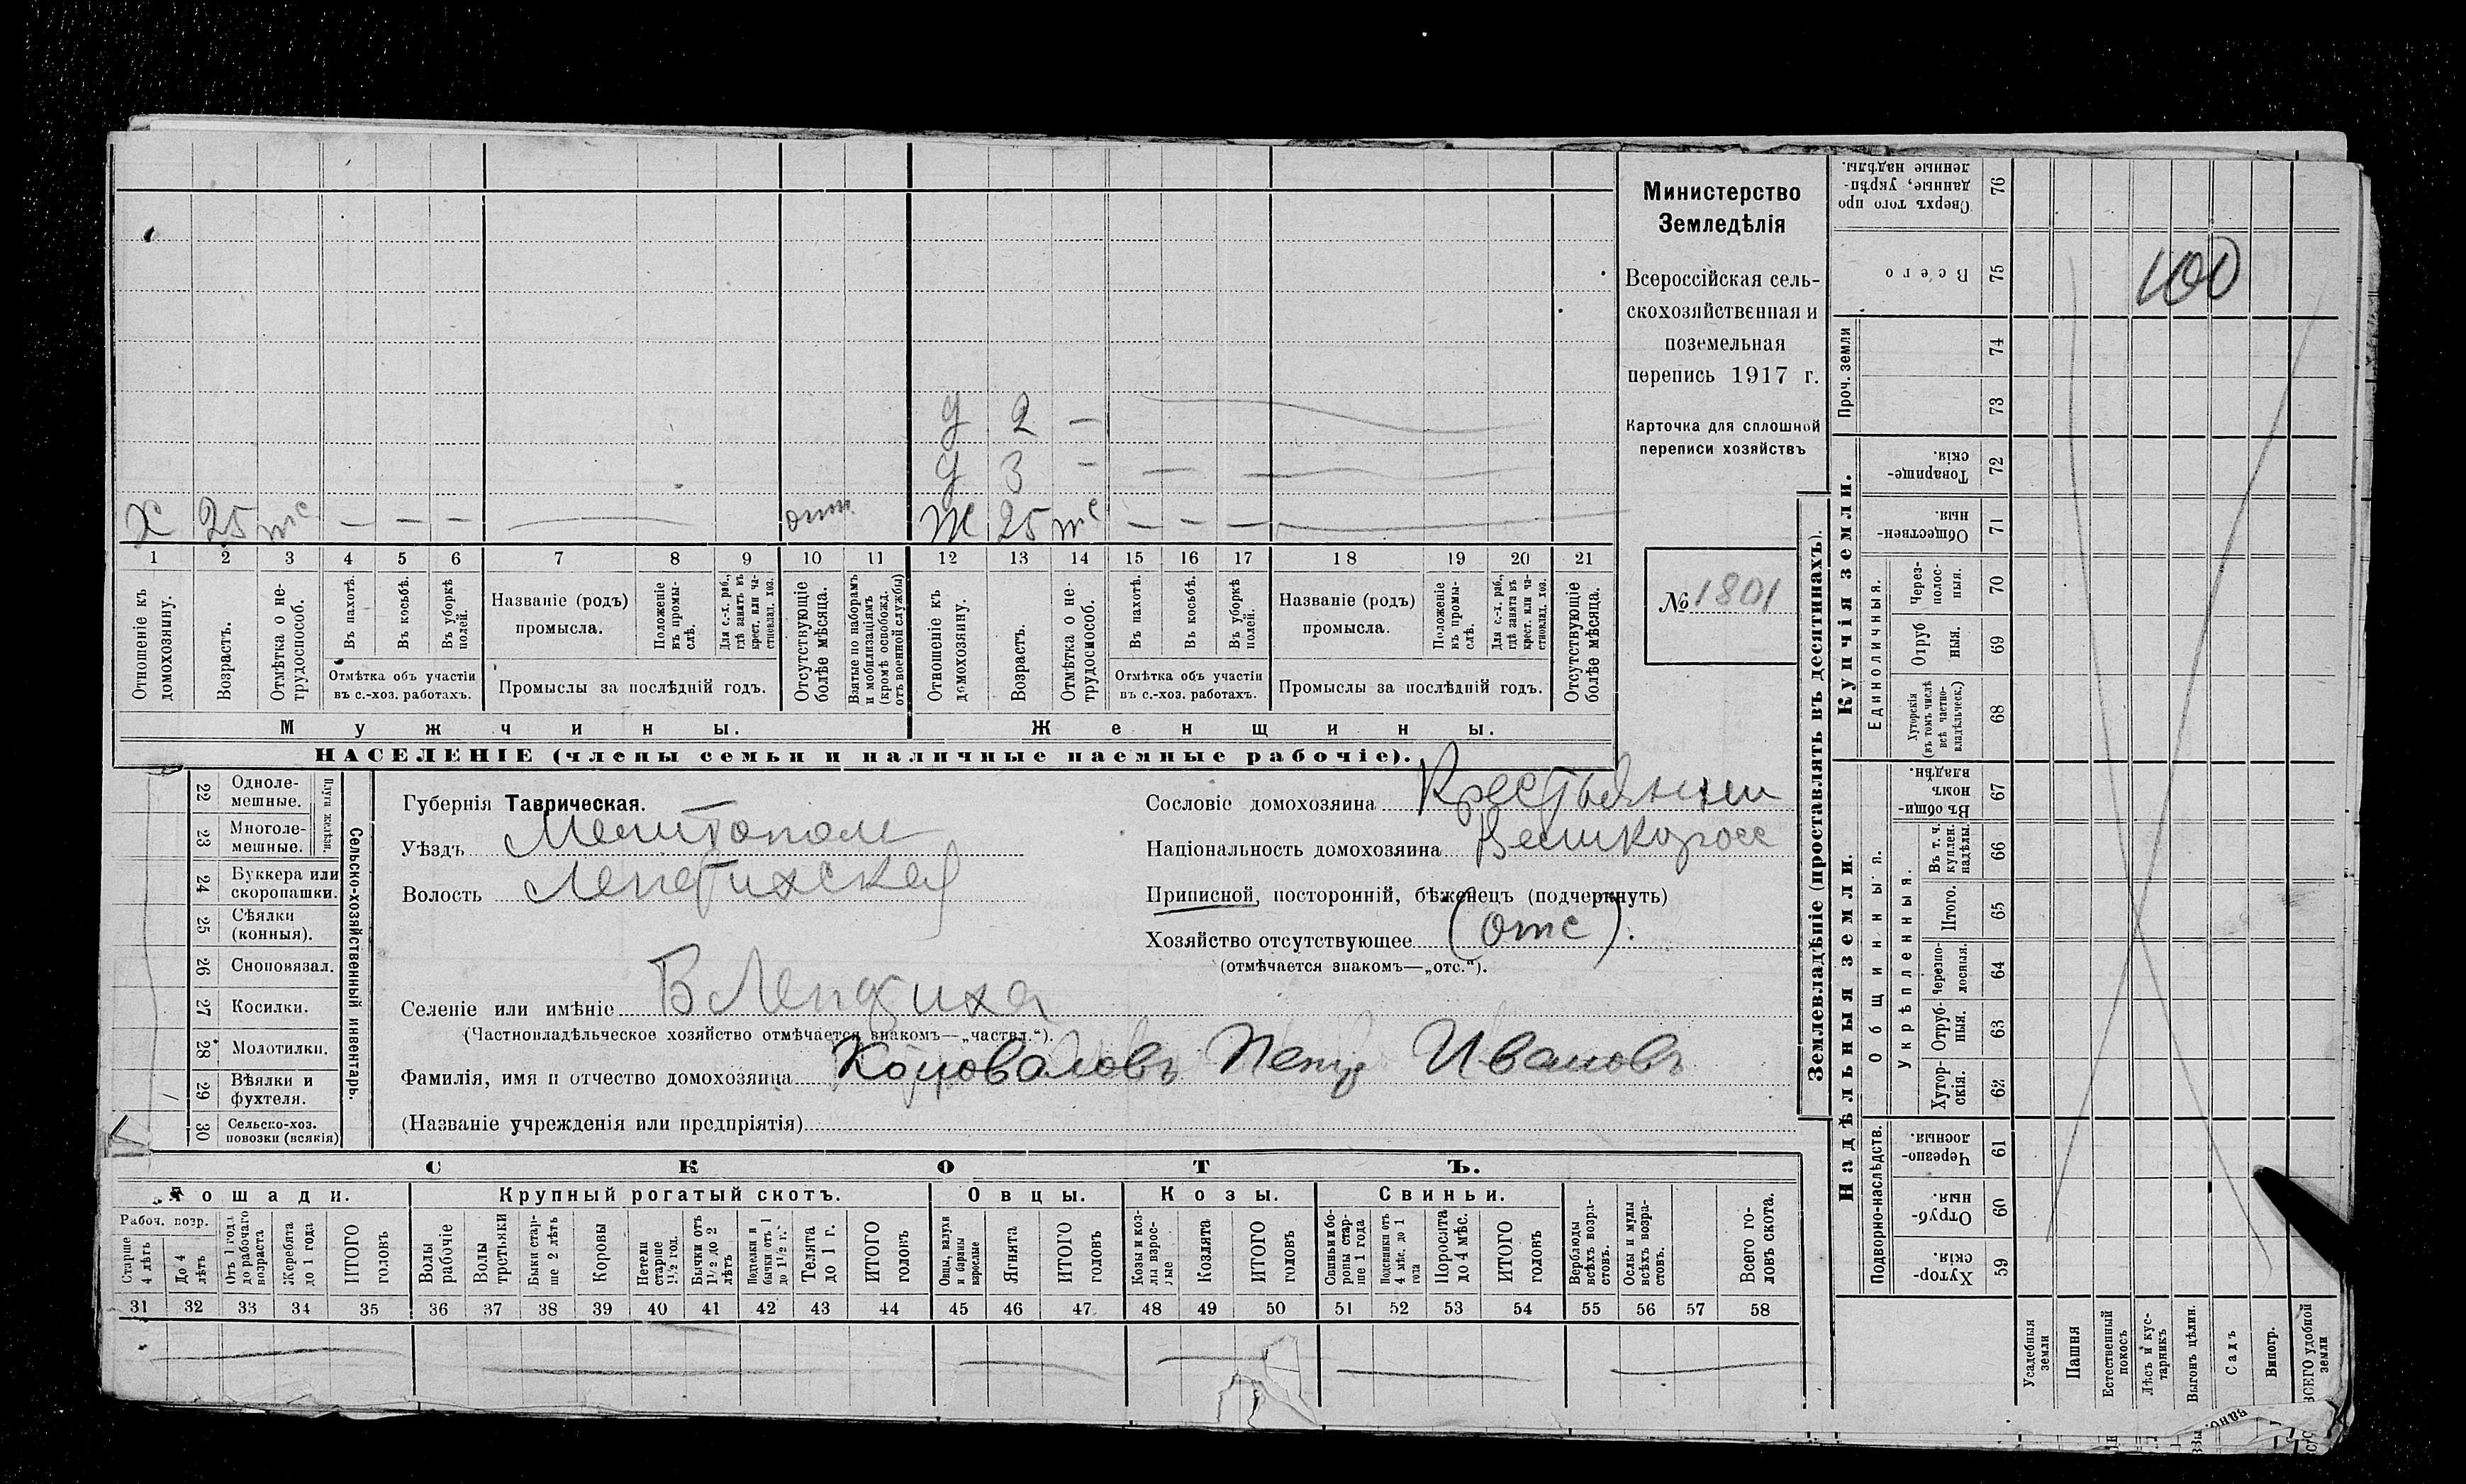 д 2 —
д 3 — —
Х 25 тс — — — отп. Ж 25 тс — — —
1 2 3 4 5 6 7 8 9 10 11 12 13 14 15 16 17 18 19 20 21
Отношеніе къ домохозяину.
Возрастъ.
Отмѣтка о не-
трудоспособ.
Въ пахотѣ.
Въ косьбѣ.
Въ уборкѣ
полей.
Отмѣтка объ участіи
въ с.-хоз. работахъ.
Названіе (родъ)
промысла.
Положеніе
въ промы-
слѣ.
Для с.-х. раб.,
гдѣ занятъ въ
крест. или ча-
стновлад. хоз.
Промыслы за послѣдній годъ.
Отсутствующіе
болѣе мѣсяца.
Взятые по наборамъ
и мобилизаціямъ
(кромѣ освобожд.
отъ военной службы)
Отношеніе къ
домохозяину.
Возрастъ.
Отмѣтка о не-
трудоспособ.
Въ пахотѣ.
Въ косьбѣ.
Въ уборкѣ
полей.
Отмѣтка объ участіи
въ с.-хоз. работахъ.
Названіе (родъ)
промысла.
Положеніе
въ промы-
слѣ.
Для с.-х. раб.,
гдѣ занята въ
крест. или ча-
стновлад. хоз.
Промыслы за послѣдній годъ.
Отсутствующіе
болѣе мѣсяца.
Мужчины.
Женщины.
НАСЕЛЕНІЕ (члены семьи и наличные наемные рабочіе).
Министерство
Земледѣлія
Всероссійская сель-
скохозяйственная и
поземельная
перепись 1917 г.
Карточка для сплошной
переписи хозяйствъ
№ 1801
22 Одноле-
мешные.
23 Многоле-
мешные.
Плуги желѣзн.
24 Буккера или
скоропашки.
25 Сѣялки
(конныя).
26 Сноповязал.
27 Косилки.
28 Молотилки.
29 Вѣялки и
фухтеля.
30 Сельско-хоз.
повозки (всякія)
Сельско-хозяйственный инвентарь.
Губернія Таврическая.
Уѣздъ Мелитополь
Волость Лепетихская
Селеніе или имѣніе Б Лепетиха
(Частновладѣльческое хозяйство отмѣчается знакомъ—„частвл.“).
Фамилія, имя и отчество домохозяина Коноваловъ Петр Ивановъ
(Названіе учрежденія или предпріятія)
Сословіе домохозяина Крестьянин
Національность домохозяина Великоросс
Приписной, посторонній, бѣженецъ (подчеркнуть)
Хозяйство отсутствующее (отс).
(отмѣчается знакомъ—„отс.“).
СКОТЪ.
Лошади.
Рабоч. возр.
Старше
4 лѣтъ
До 4
лѣтъ
Отъ 1 года
до рабочаго
возраста
Жеребята
до 1 года
ИТОГО
головъ
Крупный рогатый скотъ.
Волы
рабочіе
Волы
третьяки
Быки стар-
ше 2 лѣтъ
Коровы
Нетели
старше
1½ год.
Бычки отъ
1½ до 2
лѣтъ
Подтелки и
бычки отъ 1
до 1½ г.
Телята
до 1 г.
ИТОГО
головъ
Овцы.
Овцы, валухи
и бараны
взрослые
Ягнята
ИТОГО
головъ
Козы.
Козы и коз-
лы взрос-
лые
Козлята
ИТОГО
головъ
Свиньи.
Свиньи и бо-
ровы стар-
ше 1 года
Подсвинки отъ
4 мѣс. до 1
года
Поросята
до 4 мѣс.
ИТОГО
головъ
Верблюды
всѣхъ возра-
стовъ.
Ослы и мулы
всѣхъ возра-
стовъ.
Всего го-
ловъ скота.
31 32 33 34 35 36 37 38 39 40 41 42 43 44 45 46 47 48 49 50 51 52 53 54 55 56 57 58
Землевладѣніе (проставлять въ десятинахъ).
Сверхъ того про
данные, укрѣп-
ленные надѣлы.
76
Всего 75
100
Проч. земли
74
73
Купчія земли.
Товарище-
скія.
72
Обществен-
ныя.
71
Единоличныя.
Через-
полос-
ныя.
70
Отруб
ныя.
69
Хуторскія
(въ томъ числѣ
всѣ частно-
владѣльческ.)
68
Надѣльныя земли.
Въ общи
номъ
владѣн.
67
Общинныя.
Укрѣпленныя.
Въ т. ч.
куплен.
надѣлы.
66
Итого.
65
Черезпо-
лосныя.
64
Отруб-
ныя.
63
Хутор-
скія.
62
Подворно-наслѣдств.
Черезпо-
лосныя.
61
Отруб-
ныя.
60
Хутор-
скія.
59
Усадебныя
земли
Пашня
Естественный
покосъ
Лѣсъ и кус-
тарникъ
Выгонъ цѣлин.
Садъ
Виногр.
ВСЕГО удобной
земли